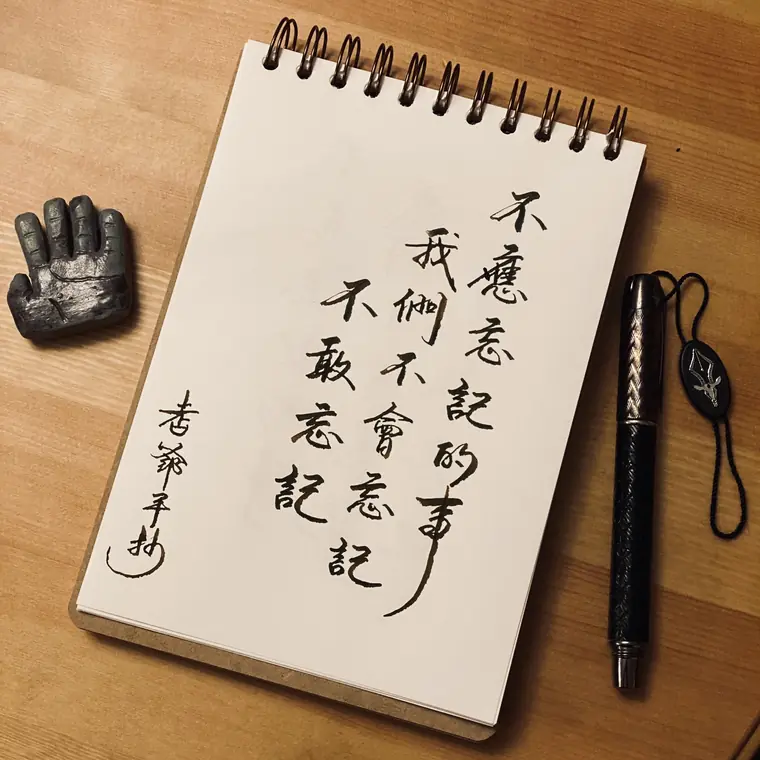 不應忘記的事
我們不會忘記
不敢忘記
杏爺手抄